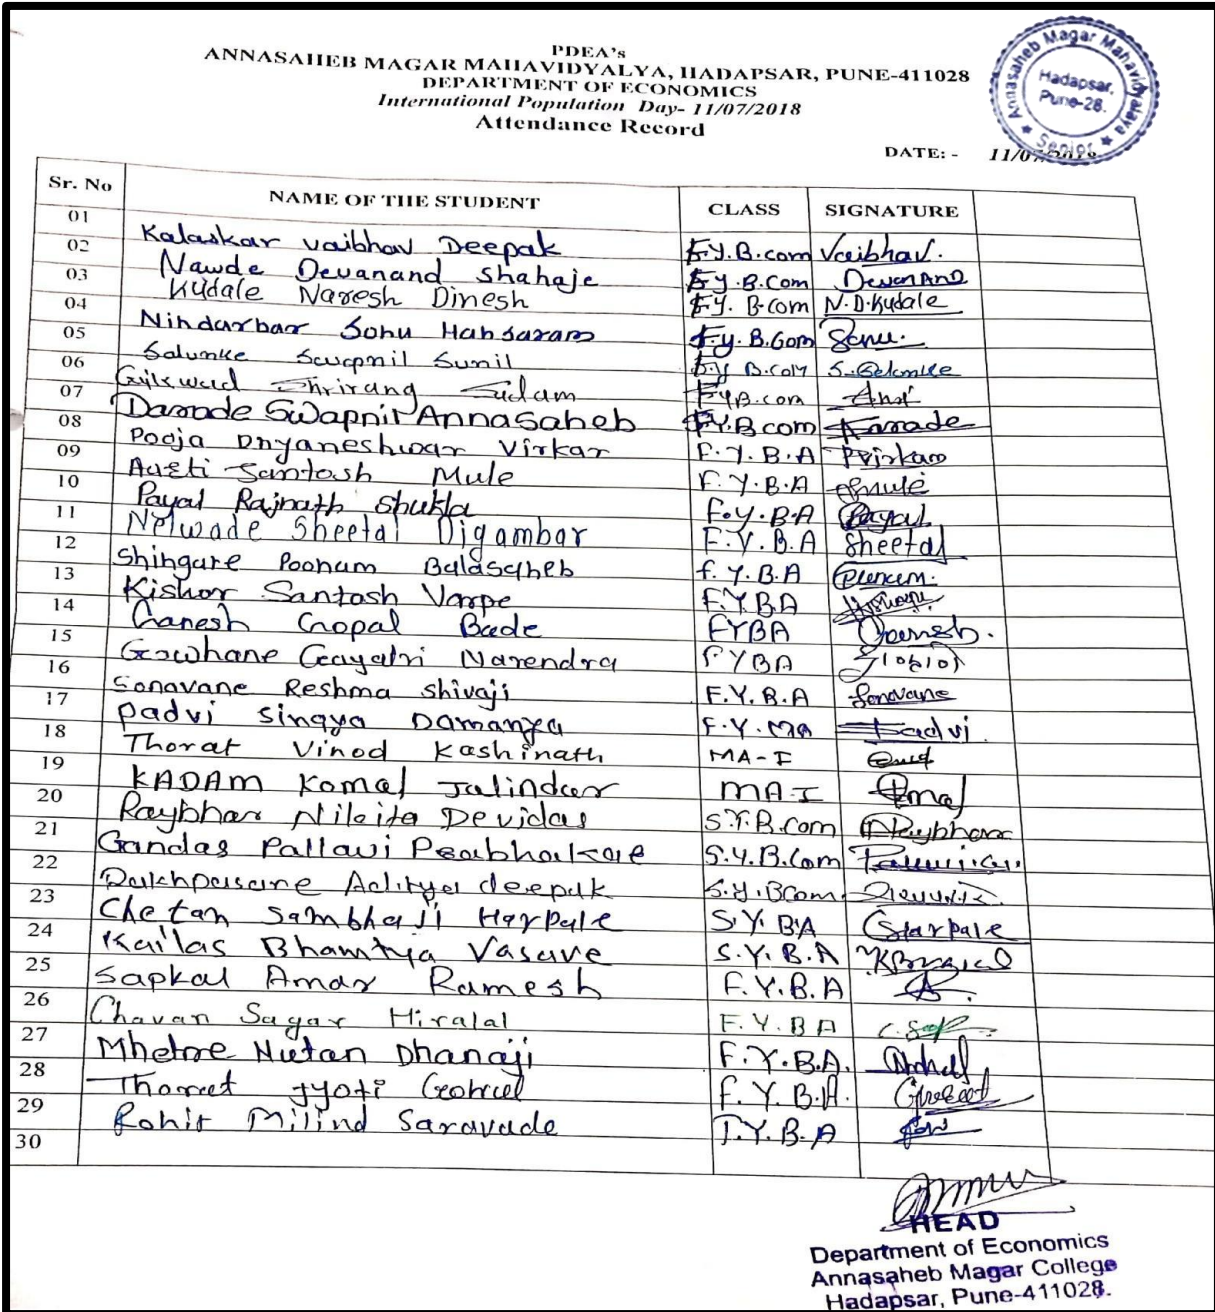 PDEA's
ANNASAHEB MAGAR MAHAVIDYALYA, HADAPSAR, PUNE-411028
DEPARTMENT OF ECONOMICS
International Population Day- 11/07/2018
Attendance Record
Annasaheb Magar Mahavidyalaya
Hadapsar,
Pune-28.
Senior
DATE: - 11/07/2018
Sr. No NAME OF THE STUDENT CLASS SIGNATURE
01 Kalaskar Vaibhav Deepak F.Y.B.com Vaibhav.
02 Nawde Devanand Shahaje F.Y.B.Com DevanAnd
03 Kudale Naresh Dinesh F.Y.B.com N.D.Kudale
04 Nindarbar Sonu Hansaram F.y.B.Com Sonu.
05 Salunke Swapnil Sunil F.Y B.com S.
06 Shrirang Sudam FYB.com
07 Darade Swapnil Annasaheb F.Y.B com
08 Pooja Dnyaneshwar Virkar F.Y.B.A PVirkar
09 Santosh Mule F.Y.B.A
10 Payal Rajnath Shukla F.Y.B.A Payal
11 Nelwade Sheetal Digambar F.Y.B.A Sheetal
12 Shingare Poonam Balasaheb F.Y.B.A
13 Kishor Santosh Varpe F.Y.B.A
14 Ganesh Gopal Bade FYBA Ganesh.
15 Gowhane Gayatri Narendra FYBA
16 Sonavane Reshma Shivaji F.Y.B.A Sonavane
17 Padvi Singya Damanya F.Y.MA Padvi.
18 Thorat Vinod Kashinath MA-I
19 KADAM Komal Jalindar MA I
20 Raybhar Nikita Devidas S.Y.B.com Raybhar
21 Gandas Pallavi Prabhakar S.Y.B.Com
22 Aditya deepak S.Y.BCom.
23 Chetan Sambhaji Harpale S.Y.BA Harpale
24 Kailas Bhamtya Vasave S.Y.B.A
25 Sapkal Amar Ramesh F.Y.B.A
26 Chavan Sagar Hiralal F.Y.BA
27 Mhetre Nutan Dhanaji F.Y.B.A.
28 Thorat Jyoti F.Y.B.A.
29 Rohit Milind Saravade T.Y.B.A
30
HEAD
Department of Economics
Annasaheb Magar College
Hadapsar, Pune-411028.